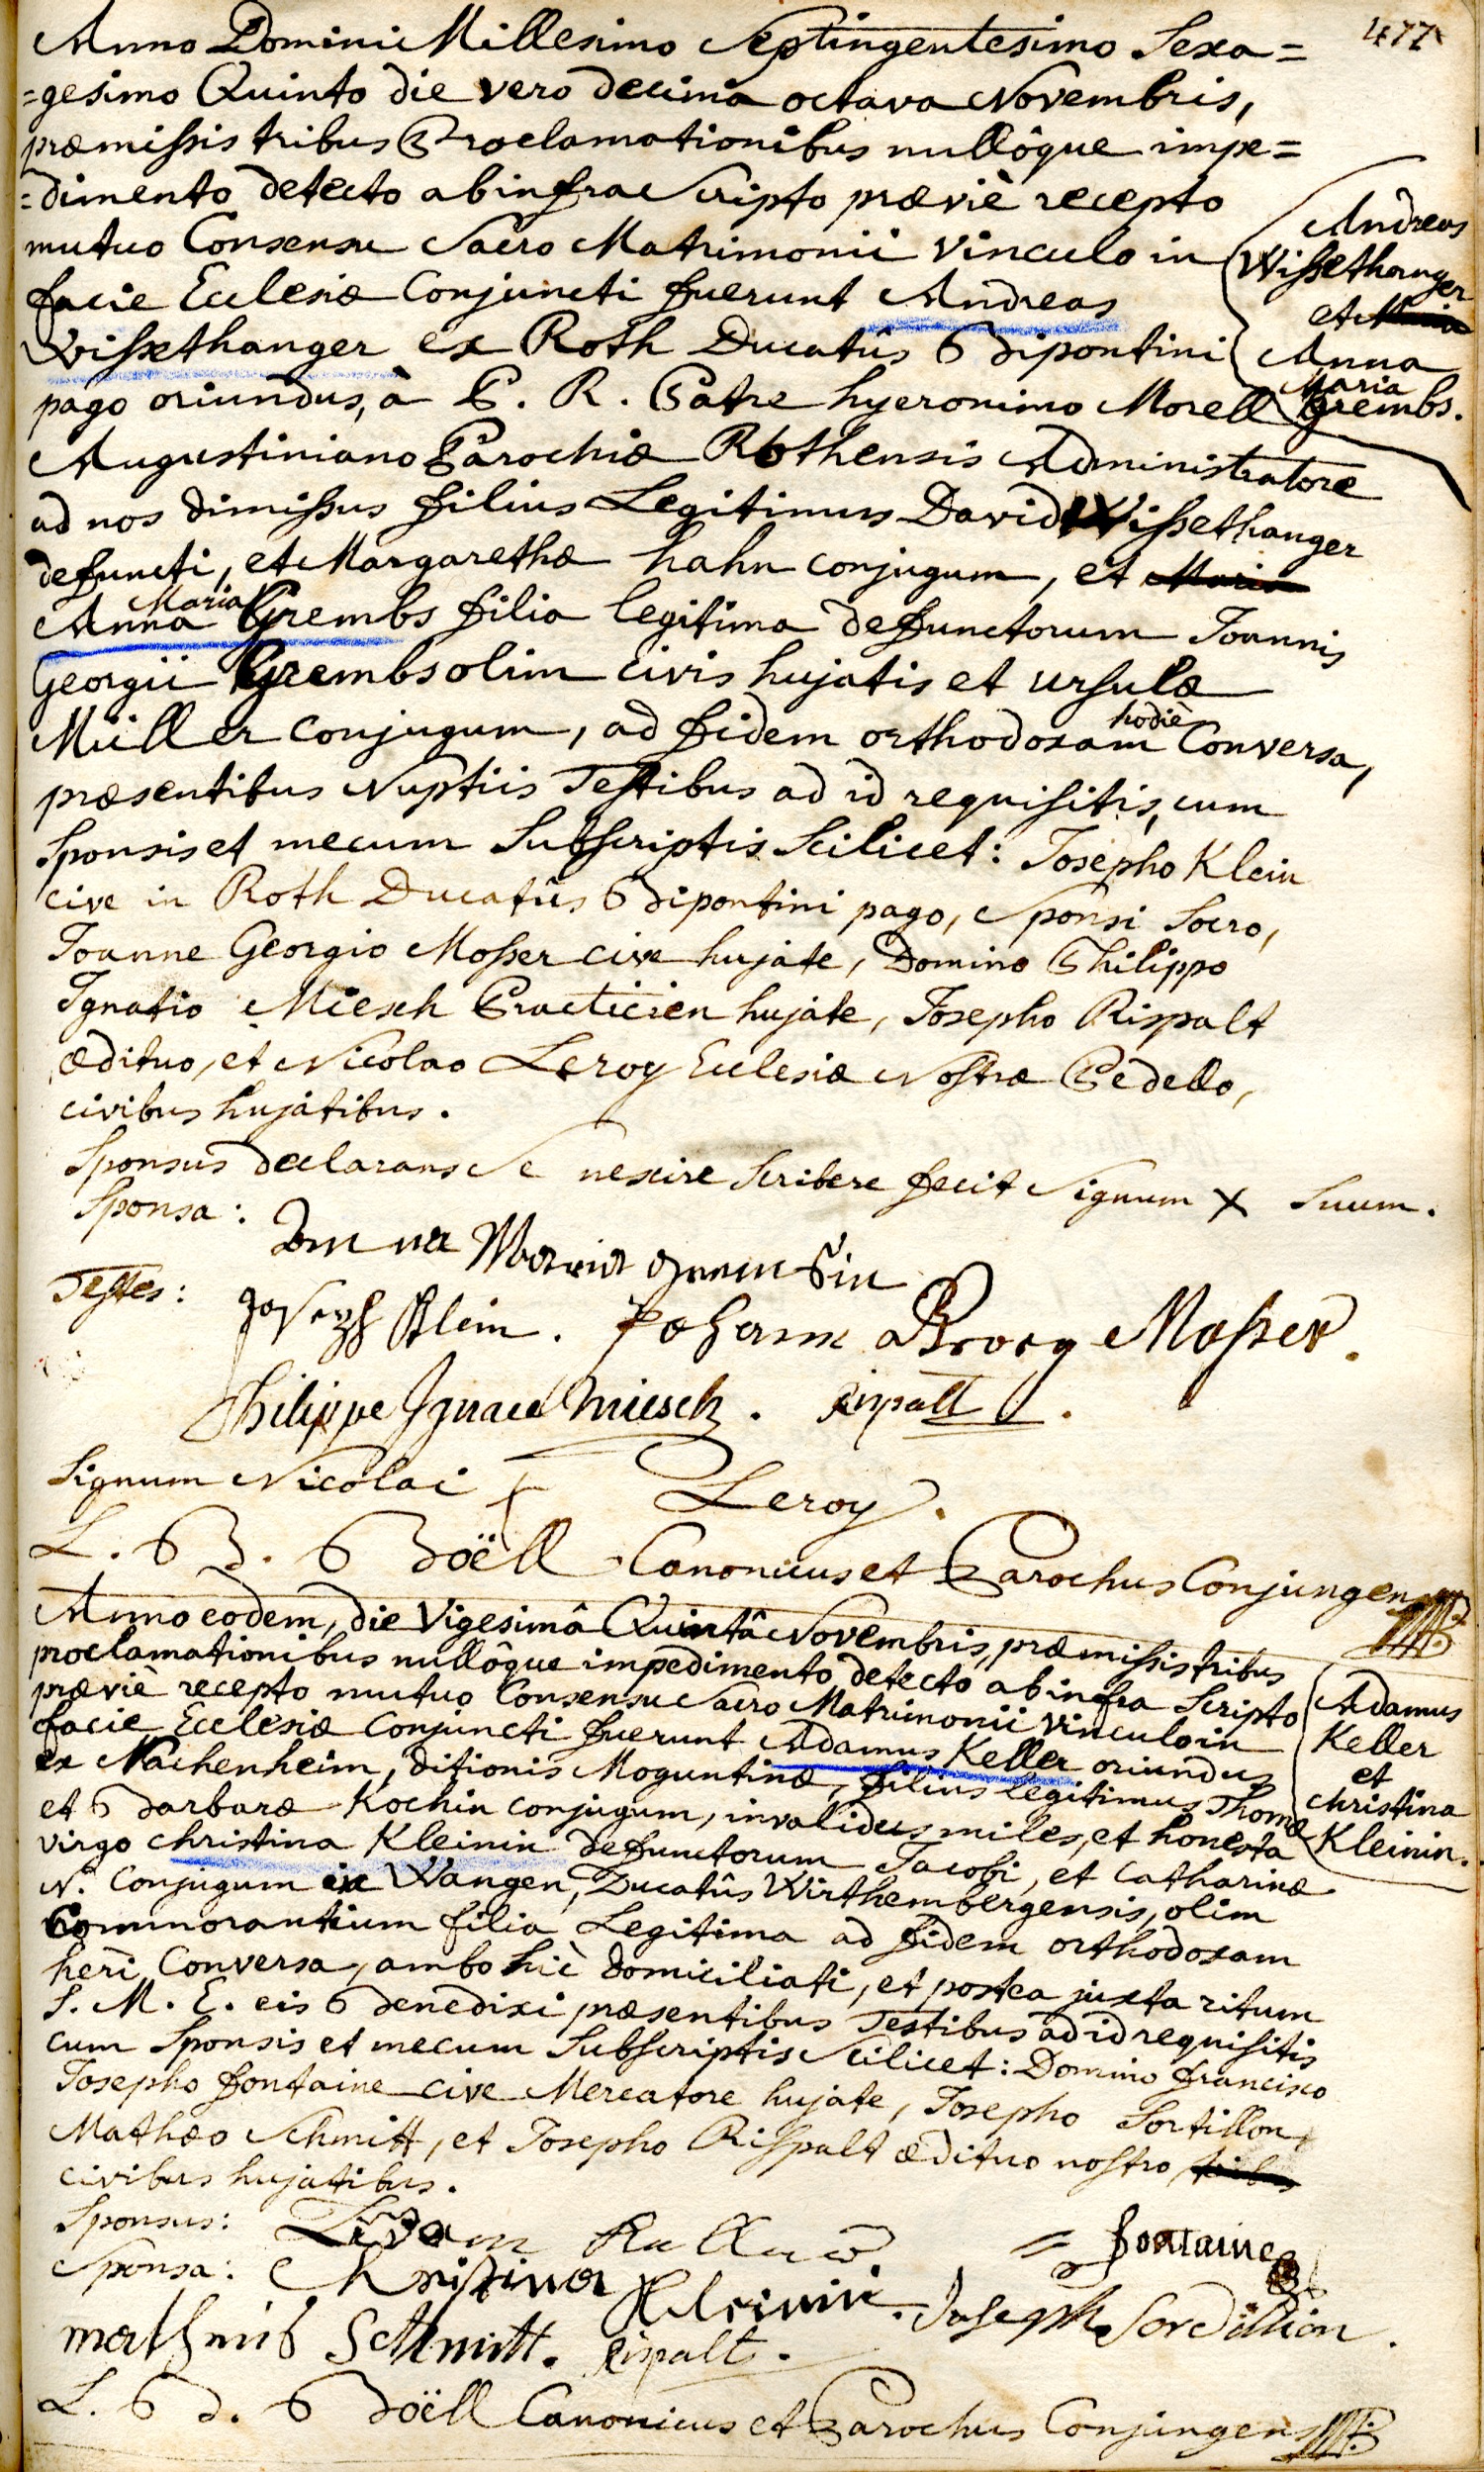 477
Anno Domini Millesimo Septingentesimo Sexa=
=gesimo Quinto die vero decima octava Novembris,
præmissis tribus Proclamationibus nullôque impe=
=dimento detecto ab infra Scripto præviè recepto
mutuo Consensu Sacro Matrimonii Vinculo in
facie Ecclesiæ Conjuncti fuerunt Andreas
Wissethanger ex Roth Ducatûs Bipontini
pago oriundus, à P. R. Patre hyeronimo Morell
Augustiniano Parochiæ Rothensis Administratore
ad nos dimissus filius Legitimus David Wissethanger
defuncti, et Margarethæ hahn conjugum, et Maria
Anna Maria Grembs filia legitima defunctorum Joannis
Georgii Grembs olim Civis hujatis et ursulæ
Müller conjugum, ad fidem orthodoxam hodiè Conversa,
præsentibus Nuptiis Testibus ad id requisitis, cum
Sponsis et mecum Subscriptis Scilicet: Josepho Klein
cive in Roth Ducatûs Bipontini pago, Sponsi Socro,
Joanne Georgio Mosser cive hujate, Domino Philippo
Ignatio Miesch Practicien hujate, Josepho Rispalt
ædituo, et Nicolao Leroy Ecclesiæ Nostræ Pedello,
civibus hujatibus.
Andreas
Wissethanger
et Maria
Anna
Maria
Grembs.
Sponsus declarans Se nescire Scribere fecit Signum X Suum.
Sponsa: Anna Maria Grembsin
Testes: Joseph Klein. Johann Georg Mosser.
Philippe Ignace Miesch. Rispalt.
Signum Nicolai + Leroy.
L. B. Boëll Canonicus et Parochus Conjungens
Anno eodem, die Vigesimâ Quintâ Novembris, præmissis tribus
proclamationibus nullôque impedimento detecto ab infra Scripto
præviè recepto mutuo Consensu Sacro Matrimonii vinculo in
facie Ecclesiæ Conjuncti fuerunt Adamus Keller oriundus
ex Nachenheim, ditionis Moguntinæ, filius legitimus Thomæ
et Barbaræ Kochin conjugum, invalidus miles, et honesta
virgo christina Kleinin defunctorum Jacobi, et Catharinæ
N. Conjugum in Wangen, Ducatûs Wirthembergensis, olim
Commorantium filia Legitima ad fidem orthodoxam
heri Conversa, ambo hìc domiciliati, et postea juxta ritum
S. M. E. eis Benedixi præsentibus Testibus ad id requisitis
cum Sponsis et mecum Subscriptis Scilicet: Domino francisco
Josepho fontaine cive Mercatore hujate, Josepho Sortillon,
Mathæo Schmitt, et Josepho Rispalt ædituo nostro
civibus hujatibus.
Adamus
Keller
et
christina
Kleinin.
Sponsus: Adam Keller. fontaine
Sponsa: Christina Kleinin. Joseph Sordillion.
mathuis Schmitt. Rispalt.
L. B. Boëll Canonicus et Parochus Conjungens